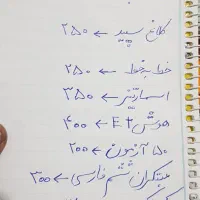 کلاغ سپید ← ۲۵۰
خط به خط ← ۲۵۰
اسمارتیز ← ۳۵۰
هوش E۴ ← ۴۰۰
۵۰ آزمون ← ۲۰۰
مبتکران ششم فارسی ← ۳۰۰